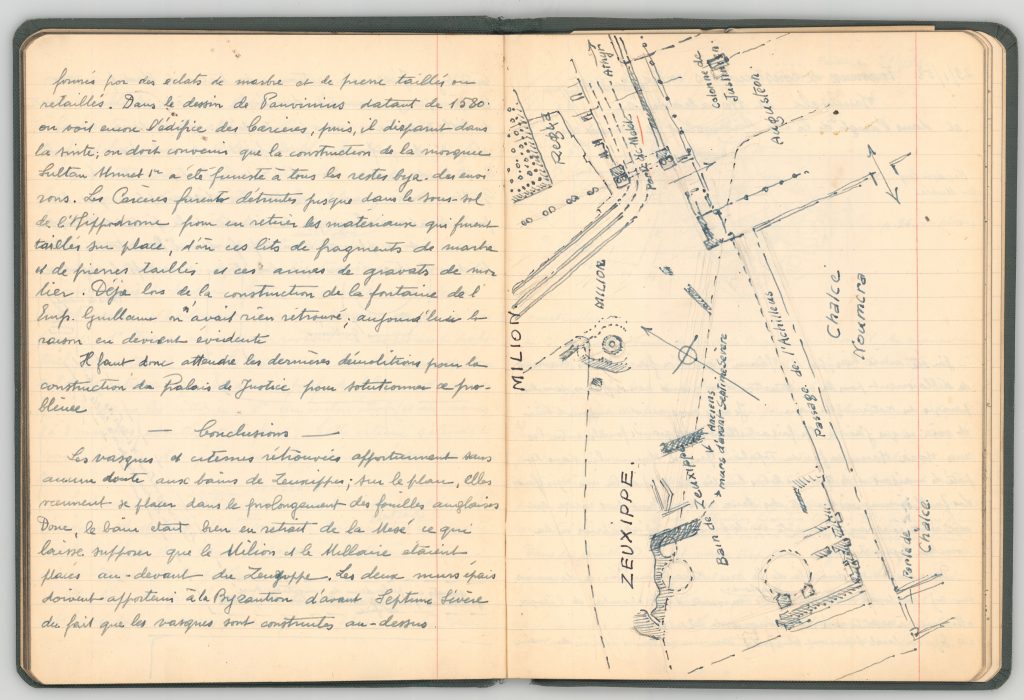 formés par des eclats de marbre et de pierre taillés ou
retaillés. Dans le dessin de Panvinius datant de 1580.
on voit encore l'édifice des Carceres, puis, il disparut dans
la suite; on doit convenir que la construction de la mosquee
Sultan Ahmet 1er a été funeste à tous les restes byz. des envi
rons. Les Carceres furent détruites jusque dans le sous-sol
de l'Hippodrome pour en retirer les materiaux qui furent
taillés sur place, d'où ces lits de fragments de marbre
et de pierres taillés et ces amas de gravats de mor
tier. Déjà lors de la construction de la fontaine de l'
Emp. Guillaume on n'avait rien retrouvé; aujourd'hui la
raison en devient évidente
Il faut donc attendre les dernières démolitions pour la
construction du Palais de Justice pour solutionner ce pro-
blème
— Conclusions —
Les vasques et citernes rétrouvées appartiennent sans
aucun doute aux bains de Zeuxippes; sur le plan, elles
viennent se placer dans le prolongement des fouilles anglaises
Donc, le bain etait bien en retrait de la Mesé ce qui
laisse supposer que le Milion et le Milliaire etaient
placés au-devant du Zeuxippe. Les deux murs épais
doivent appartenir à la Byzantion d'avant Septime Sévère
du fait que les vasques sont construites au-dessus.
Regia
Porte de Meletios
Colonne de
Justinien
Augusteon
MILION
MILION
ZEUXIPPE.
Bain de Zeuxippe
Anciens
murs d'avant Septime Sévère
Passage de l'Achilleus
Chalcé
Noumera
Porte de la
Chalcé